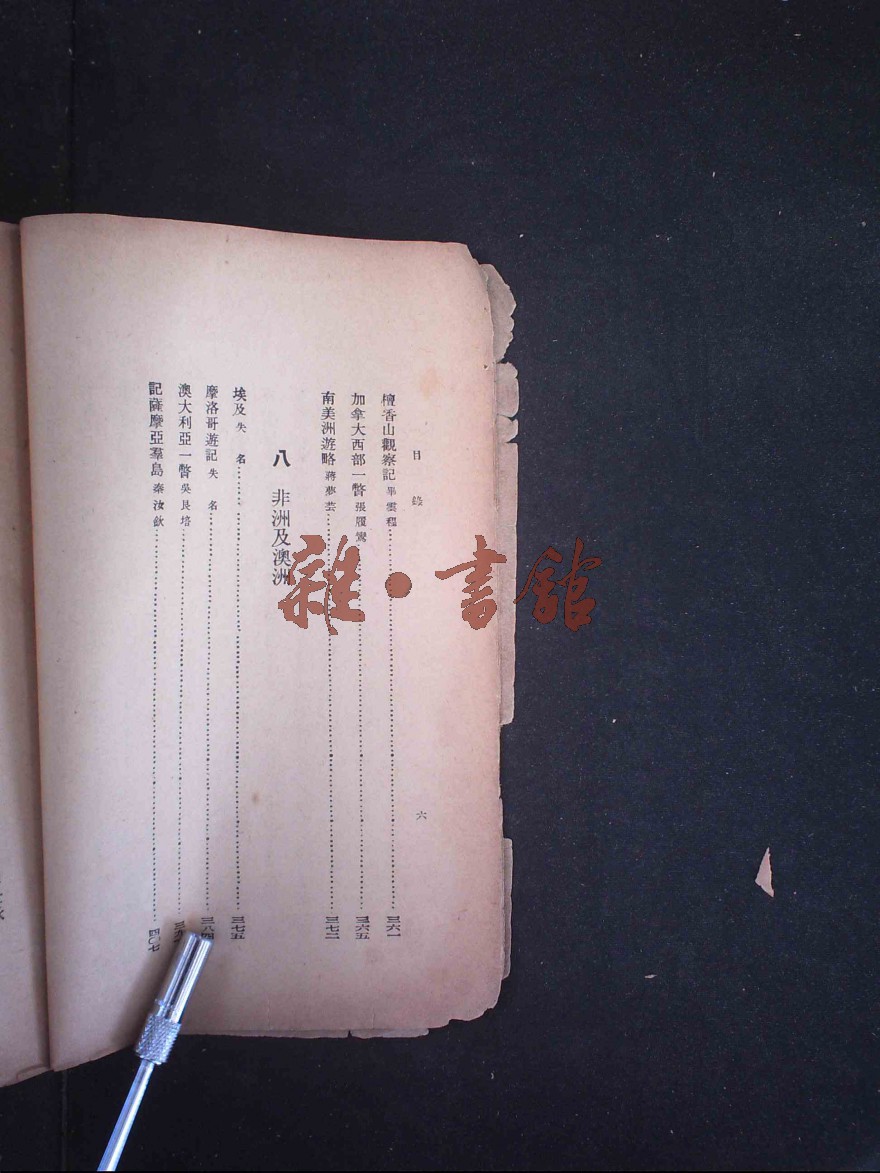 目錄
六
檀香山觀察記 畢雲程……三六一
加拿大西部一瞥 張履鸞……三六五
南美洲遊略 蔣夢芸……三七二
八 非洲及澳洲
埃及 失名……三七五
摩洛哥遊記 失名……三八四
澳大利亞一瞥 吳良培……三
記薩摩亞羣島 秦汝欽……四〇七
雜·書館